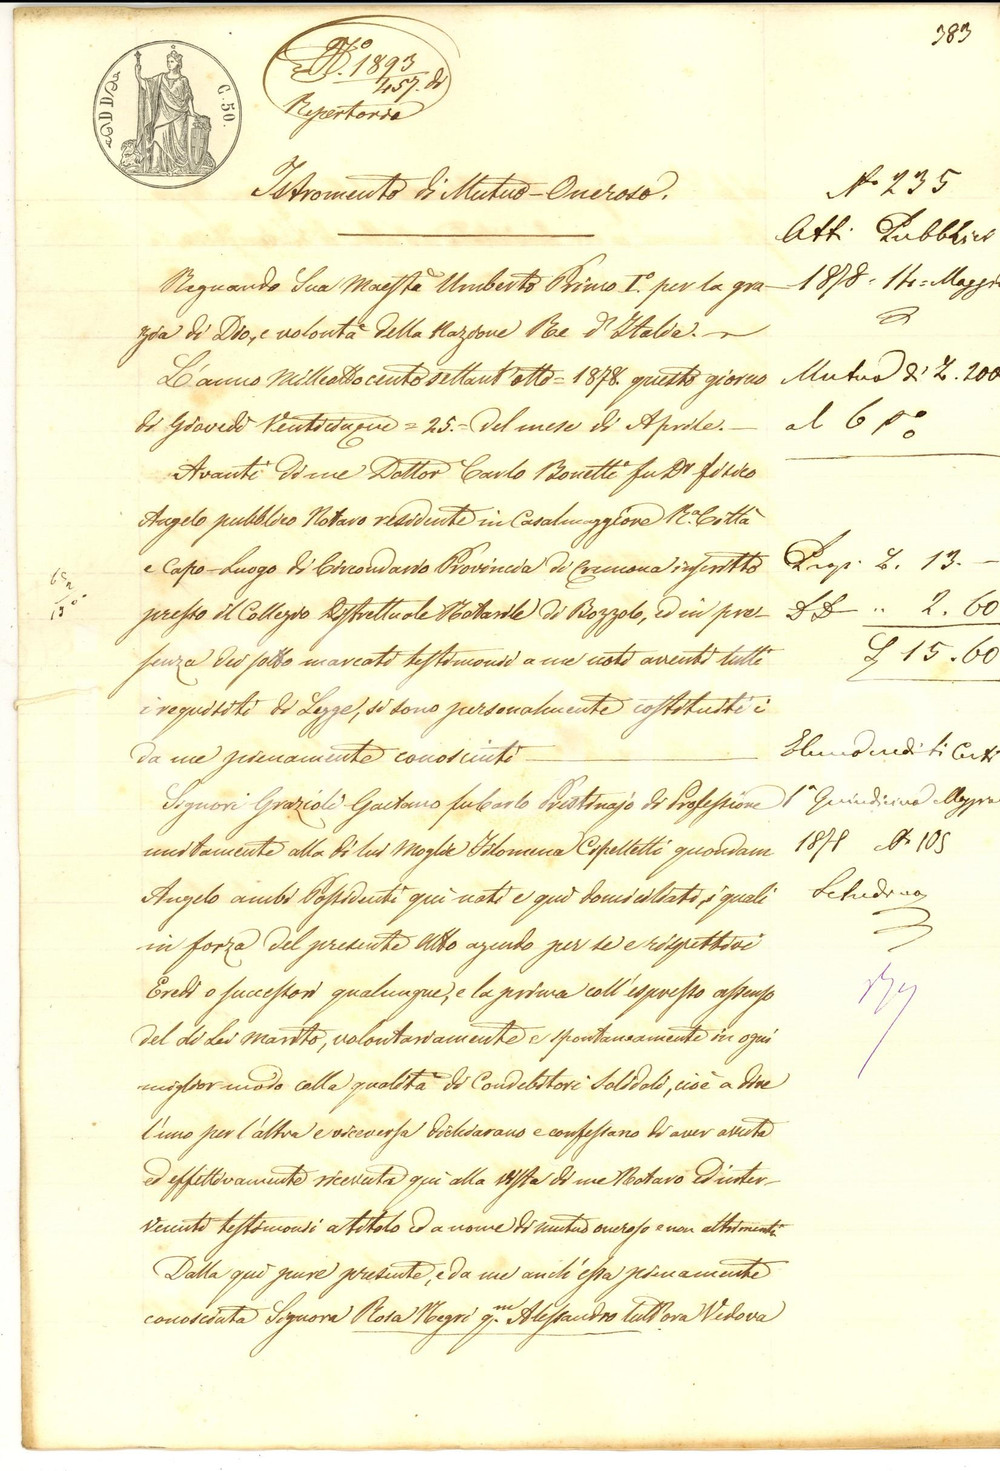 383
C. 50.
N.° 1893
457. di
Repertorio
Istromento di Mutuo-Oneroso.
Regnando Sua Maestà Umberto Primo I.° per la gra-
zia di Dio, e volontà della Nazione Re d'Italia.
L'anno Milleottocentosettant'otto = 1878 questo giorno
di Giovedì Venticinque = 25.= del mese di Aprile.
Avanti di me Dottor Carlo Bonetti fu Dr fisico
Angelo pubblico Notaro residente in Casalmaggiore Ra. Città
e Capo-Luogo di Circondario Provincia di Cremona inscritto
presso il Collegio Distrettuale Notarile di Bozzolo, ed in pre-
senza dei sotto marcati testimonii a me noti aventi tutti
i requisiti di Legge, si sono personalmente costituiti i
da me pienamente conosciuti
Signori Grazioli Gaetano fu Carlo Prestinajo di Professione
unitamente alla di lui Moglie Filomena Capelletti quondam
Angelo ambi Possidenti qui nati e qui domiciliati, i quali
in forza del presente Atto agendo per se e rispettivi
Eredi o successori qualunque, e la prima coll'espresso assenso
del di Lei marito, volontariamente e spontaneamente in ogni
miglior modo colla qualità di Condebitori Solidali, cioè a dire
l'uno per l'altra e viceversa dichiarano e confessano di aver avuta
ed effettivamente ricevuta qui alla vista di me Notaro ed inter-
venuti testimonii a titolo ed a nome di mutuo oneroso e non altrimenti
Dalla qui pure presente, e da me anch'essa pienamente
conosciuta Signora Rosa Negri qm. Alessandro tutt'ora Vedova
N.° 235
Atti Pubblici
1878 = 14 = Maggio
Mutuo di L. 200
al 6 p%
Prop. L. 13. -
DD " 2. 60
L 15. 60
1a Quindicina Maggio
1878 N° 105